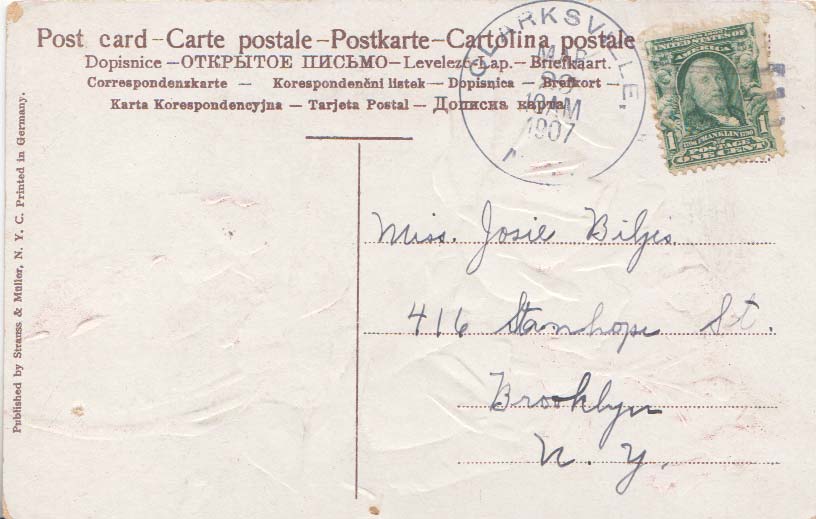 Post card – Carte postale – Postkarte – Cartolina postale
Dopisnice – ОТКРЫТОЕ ПИСЬМО – Levelező-Lap. – Briefkaart.
Correspondenzkarte – Korespondenčni listek – Dopisnica – Brefkort –
Karta Korespondencyjna – Tarjeta Postal – Дописна карта
CLARKSVILLE,
MAR
10AM
1907
UNITED STATES OF
AMERICA
1790 FRANKLIN 1790
1 POSTAGE 1
ONE CENT
Miss. Josie
416 Stanhope St.
Brooklyn
N. Y.
Published by Strauss & Müller, N. Y. C. Printed in Germany.